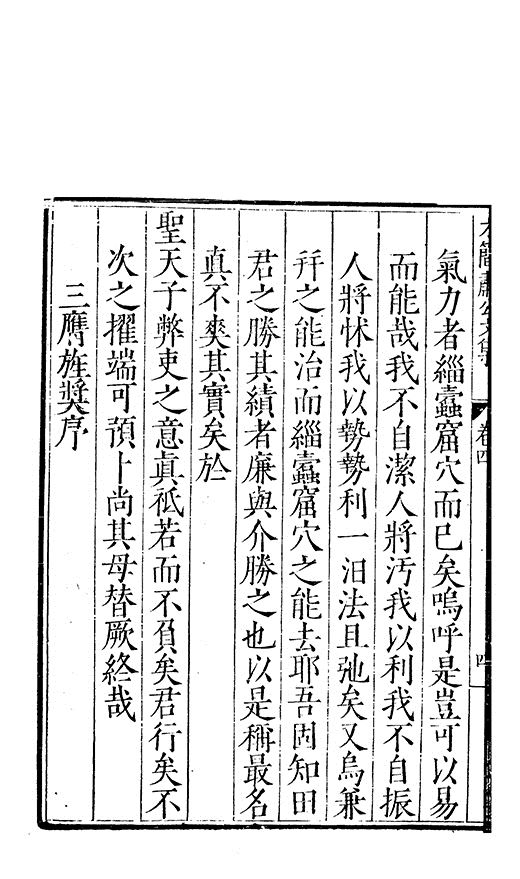 簡肅公文集
卷四
四
氣力者緇蠹窟穴而已矣嗚呼是豈可以易
而能哉我不自潔人將汚我以利我不自振
人將怵我以勢勢利一汨法且弛矣又烏兼
幷之能治而緇蠹窟穴之能去耶吾固知田
君之勝其績者廉與介勝之也以是稱最名
真不爽其實矣於
聖天子弊吏之意真祇若而不負矣君行矣不
次之擢端可預卜尚其毋替厥終哉
三膺旌獎序